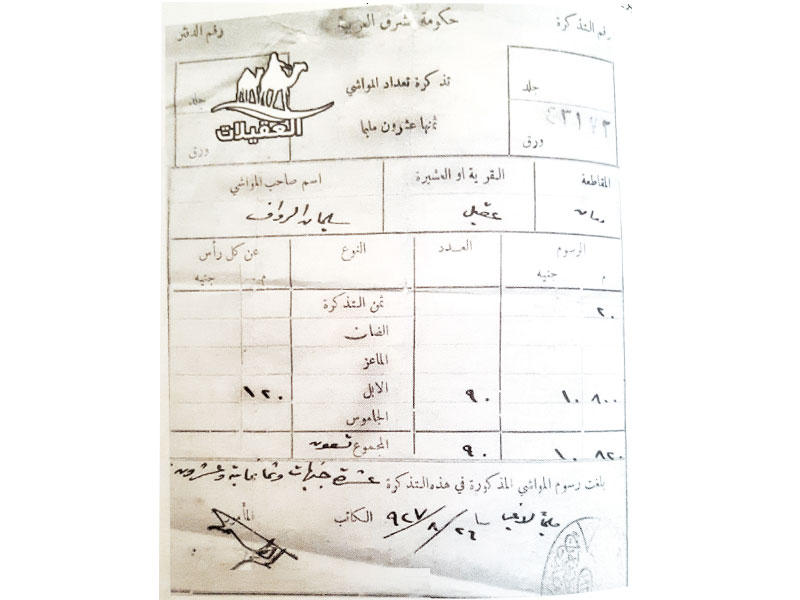 رقم التذكرة حكومة شرق العربية رقم الدفتر
جلد تذكرة تعداد المواشي جلد
٤٣١٧٢ ثمنها عشرون مليما العقيلات
ورق ورق
المقاطعة القرية او العشيرة اسم صاحب المواشي
عقيل سليمان الرواف
الرسوم العدد النوع عن كل رأس
م جنيه م جنيه
٢٠ ثمن التذكرة
الضان
الماعز
٨٠٠ ١٠ ٩٠ الابل ١٢٠
الجاموس
٨٢٠ ١٠ ٩٠ المجموع تسعون
بلغت رسوم المواشي المذكورة في هذه التذكرة عشرة جنيهات وثمانماية وعشرون
مليما لاغيا ٩٢٧/٨/٢٦ الكاتب المأمور